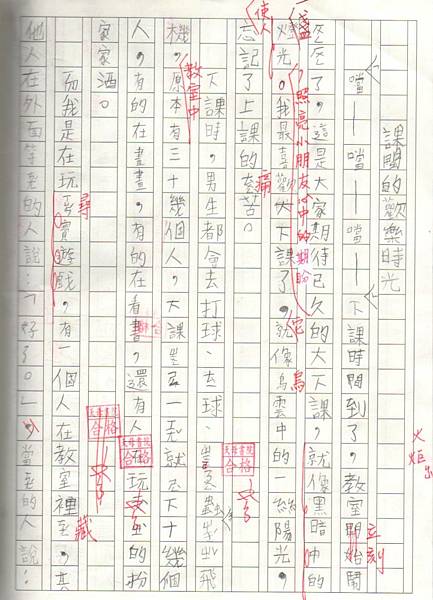 課間的歡樂時光
噹—噹—噹—下課時間到了，教室開始鬧
了，這是大家期待已久的大下課，就像黑暗中的
燈光。我最喜歡大下課了，就像烏雲中的一絲陽光，
忘記了上課的苦。
下課時，男生都會去打球、去球、飛
機，原本有三十幾個人，大課一到就下十幾個
人，有的在畫畫，有的在看書，還有人在玩的扮
家家酒。
而我是在玩寶遊戲，有一個人在教室裡，其
他人在外面等的人說「好了。」，當的人說：
一盞
使人
照亮小朋友心中的期盼
教室中
痛
烏
火炬
立刻
尋
藏
合格
合格
合格